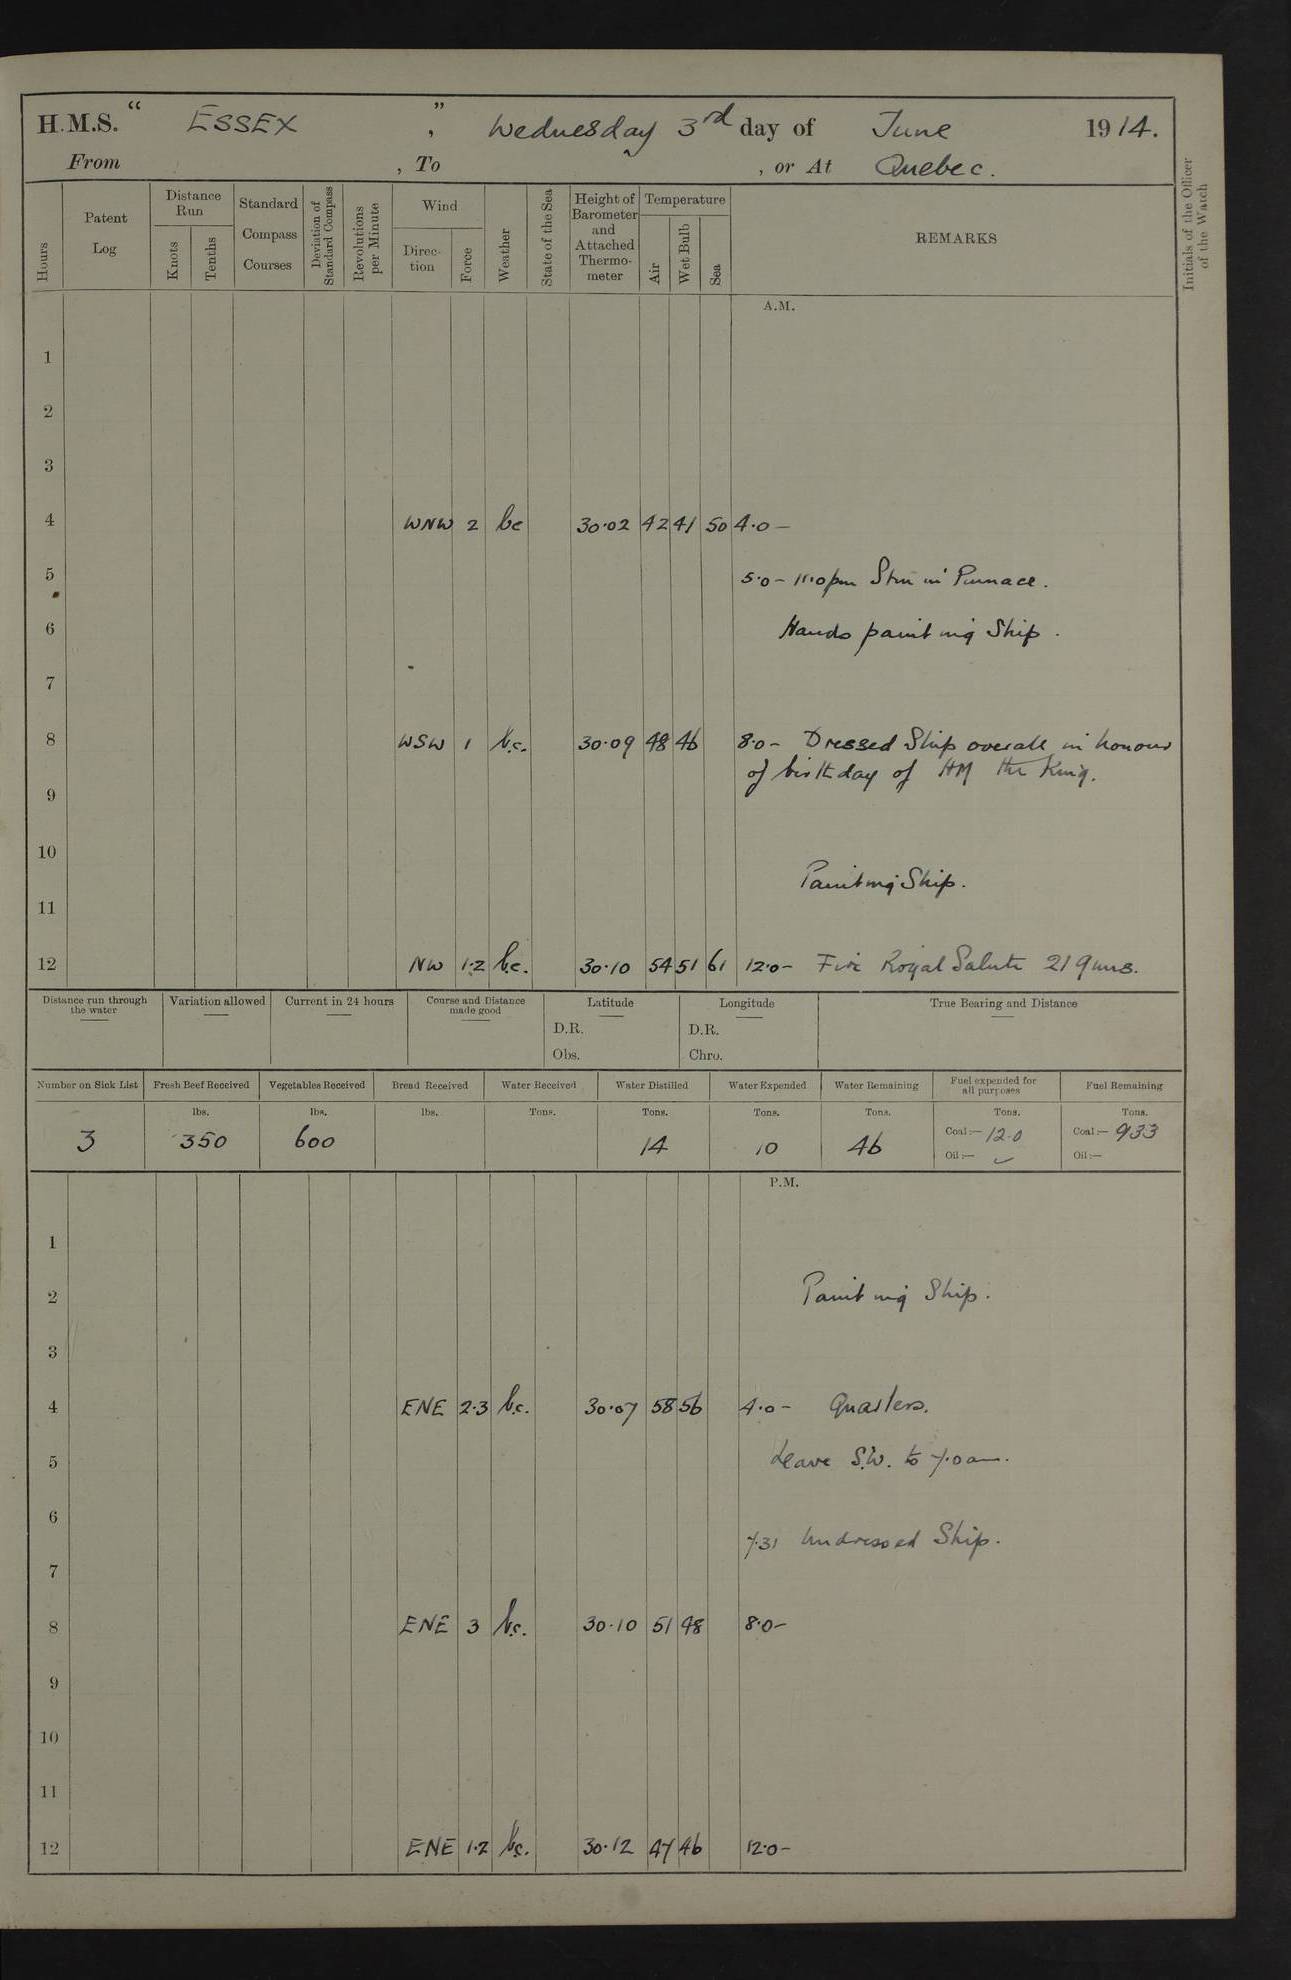 H.M.S. “ ESSEX ”, Wednesday 3rd day of June 1914.
From , To , or At Quebec.
Hours
Patent Log
Distance Run
Knots
Tenths
Standard Compass Courses
Deviation of Standard Compass
Revolutions per Minute
Wind
Direction
Force
Weather
State of the Sea
Height of Barometer and Attached Thermometer
Temperature
Air
Wet Bulb
Sea
REMARKS
Initials of the Officer of the Watch
A.M.
1
2
3
4 WNW 2 bc 30.02 42 41 50 4.0 –
5 5.0 – 11.0pm Stm in Pinnace.
6 Hands painting Ship.
7
8 WSW 1 b.c. 30.09 48 46 8.0 – Dressed Ship overall in honour
of birthday of HM the King.
9
10
Painting Ship.
11
12 NW 1.2 b.c. 30.10 54 51 61 12.0 – Fire Royal Salute 21 guns.
Distance run through the water
Variation allowed
Current in 24 hours
Course and Distance made good
Latitude
D.R.
Obs.
Longitude
D.R.
Chro.
True Bearing and Distance
Number on Sick List
Fresh Beef Received
Vegetables Received
Bread Received
Water Received
Water Distilled
Water Expended
Water Remaining
Fuel expended for all purposes
Fuel Remaining
lbs. lbs. lbs. Tons. Tons. Tons. Tons. Tons. Tons.
3 350 600 14 10 46 Coal :— 12.0 Coal :— 933
Oil :— Oil :—
P.M.
1
2 Painting Ship.
3
4 ENE 2.3 b.c. 30.07 58 56 4.0 – Quarters.
5 Leave S.W. to 7.0am.
6
7.31 Undressed Ship.
7
8 ENE 3 b.c. 30.10 51 48 8.0 –
9
10
11
12 ENE 1.2 b.c. 30.12 47 46 12.0 –